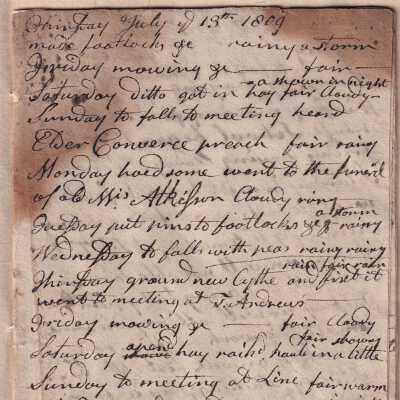 Thirsday July ye 13th 1809
made footlocks &c rainy a storm
Friday mowing &c — fair —
a shower in night
Saturday ditto got in hay fair Cloudy
Sunday to falls to meeting heard
Elder Converce preach fair rainy
Monday hoed some went to the funeral
of old Mrs Atkisson Cloudy rainy
a storm
Tuesday put pins to footlocks &c rainy
Wednesday to falls with peas rainy rainy
rain fair rain
Thirsday ground new Cythe and fixet it
went to meeting at T. Andrews
Friday mowing &c — fair Cloudy
opend fair showery
Saturday hay raikd hauld in a little
Sunday to meeting at Line fair warm